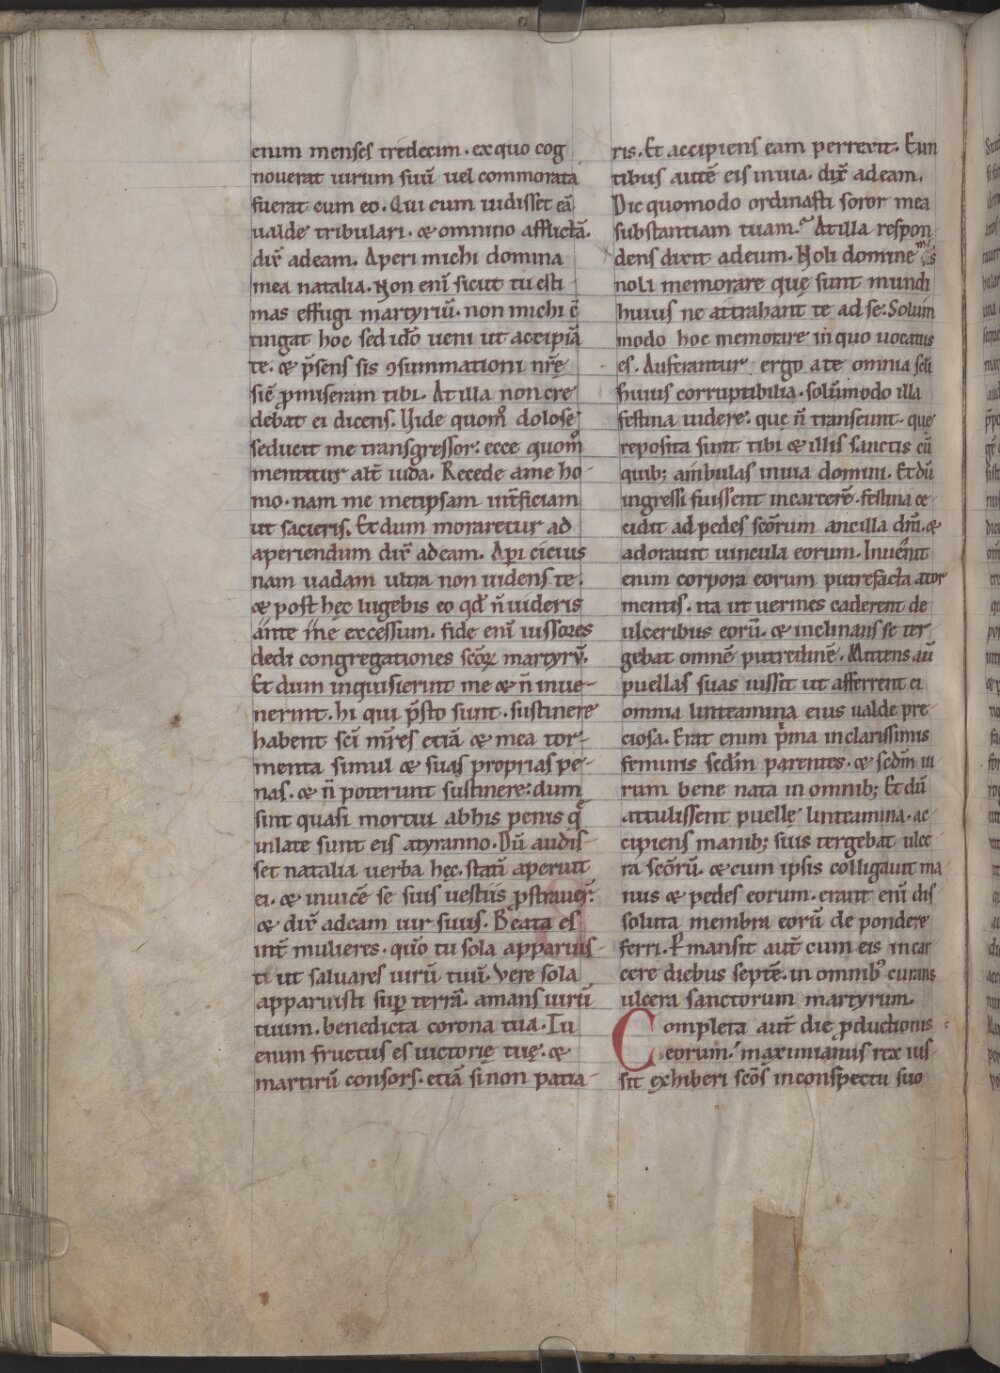 enim menses tredecim. ex quo cog
nouerat uirum suū uel commorata
fuerat cum eo. Qui cum uidisset eā
ualde tribulari. & omnino afflictā.
dix̄ ad eam. Aperi michi domina
mea natalia. Non eni͞ sicut tu esti
mas effugi martyriū. non michi c̄
tingat hoc sed id͞o ueni ut accipiā
te. & p̄sens sis ꝯsummationi nr̄ę
sic̄ ꝓmiseram tibi. At illa non cre
debat ei dicens. Uide quom̊ dolose
seducit me transgressor: ecce quom̊
mentitur alt̄ iuda. Recede a me ho-
mo. nam me metipsam int̄ficiam
ut sacieris. Et dum moraretur ad
aperiendum dix̄ ad eam. Aꝑi cicius
nam uadam ultra non uidens te.
& post hęc lugebis eo qd̄ n̄ uideris
ante me excessum. fide eni͞ iussores
dedi congregationes sc̄oꝝ martyrū.
Et dum inquisierint me & n̄ inue-
nerint. hi qui p̄sto sunt. sustinere
habent sci͞ mr̄es etiā & mea tor-
menta simul & suas proprias pe-
nas. & n̄ poterunt sustinere: dum
sint quasi mortui ab his penis q̄
inlate sunt eis a tyranno. Dū audis-
set natalia uerba hęc. statī aperuit
ei. & inuicē se suis uestiis ꝓstrauer̄.
& dix̄ ad eam uir suus. Beata es
int̄ mulieres. qūo tu sola apparuis-
ti ut saluares uirū tuū. Vere sola
apparuisti suꝑ terrā. amans uirū
tuum. benedicta corona tua. Tu
enim fructus es uictorię tuę. &
martirū consors. etiā si non patia-
ris. Et accipiens eam perrexit. Eun
tibus autē eis in uia. dix̄ ad eam.
Dic quomodo ordinasti soror mea
substantiam tuam. At illa respon
dens dixit ad eum. Noli domine m̄s
noli memorare quę sunt mundi
huius ne attrahant te ad se. Solum
modo hoc memorare in quo uocatus
es. Auferantur ergo a te omnia seli
huius corruptibilia. solummodo illa
festina uidere. que n̄ transeunt. que
reposita sunt tibi & illis sanctis cū
quib; ambulas in uia domini. Et dū
ingressi fuissent in carcerē. festina ce
cidit ad pedes sc̄orum ancilla dn̄i. &
adorauit uincula eorum. Inuenit
enim corpora eorum putrefacta a tor
mentis. ita ut uermes caderent de
ulceribus eorū. & inclinans se ter-
gebat omnē putredinē. Mittens aū
puellas suas iussit ut afferrent ei
omnia linteamina eius ualde pre
ciosa. Erat enim p̄ma in clarissimis
feminis sedm̄ parentes. & sedm̄ ui
rum bene nata in omnib; Et dū
attulissent puellę linteamina. ac-
cipiens manib; suis tergebat ulce
ra sc̄orū. & cum ipsis colligauit ma
nus & pedes eorum. erant eni͞ dis
soluta membra eorū de pondere
ferri. Ꝑmansit aut̄ cum eis in car
cere diebus septē. in omnib; curans
ulcera sanctorum martyrum.
Completa aut̄ die ꝓductionis
eorum. maximianus rex ius
sit exhiberi sc̄os in conspectu suo